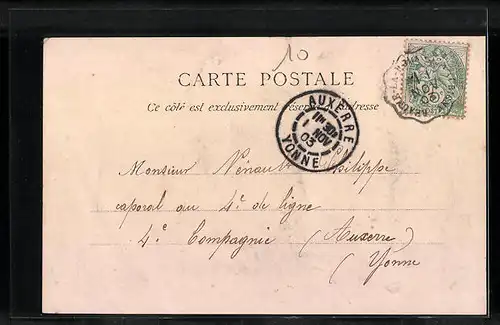 10
CARTE POSTALE
Ce côté est exclusivement réservé à l'adresse
AUXERRE
1 NOV
03
YONNE
Monsieur Philippe
caporal au 4e de ligne
4e Compagnie (Auxerre
(Yonne